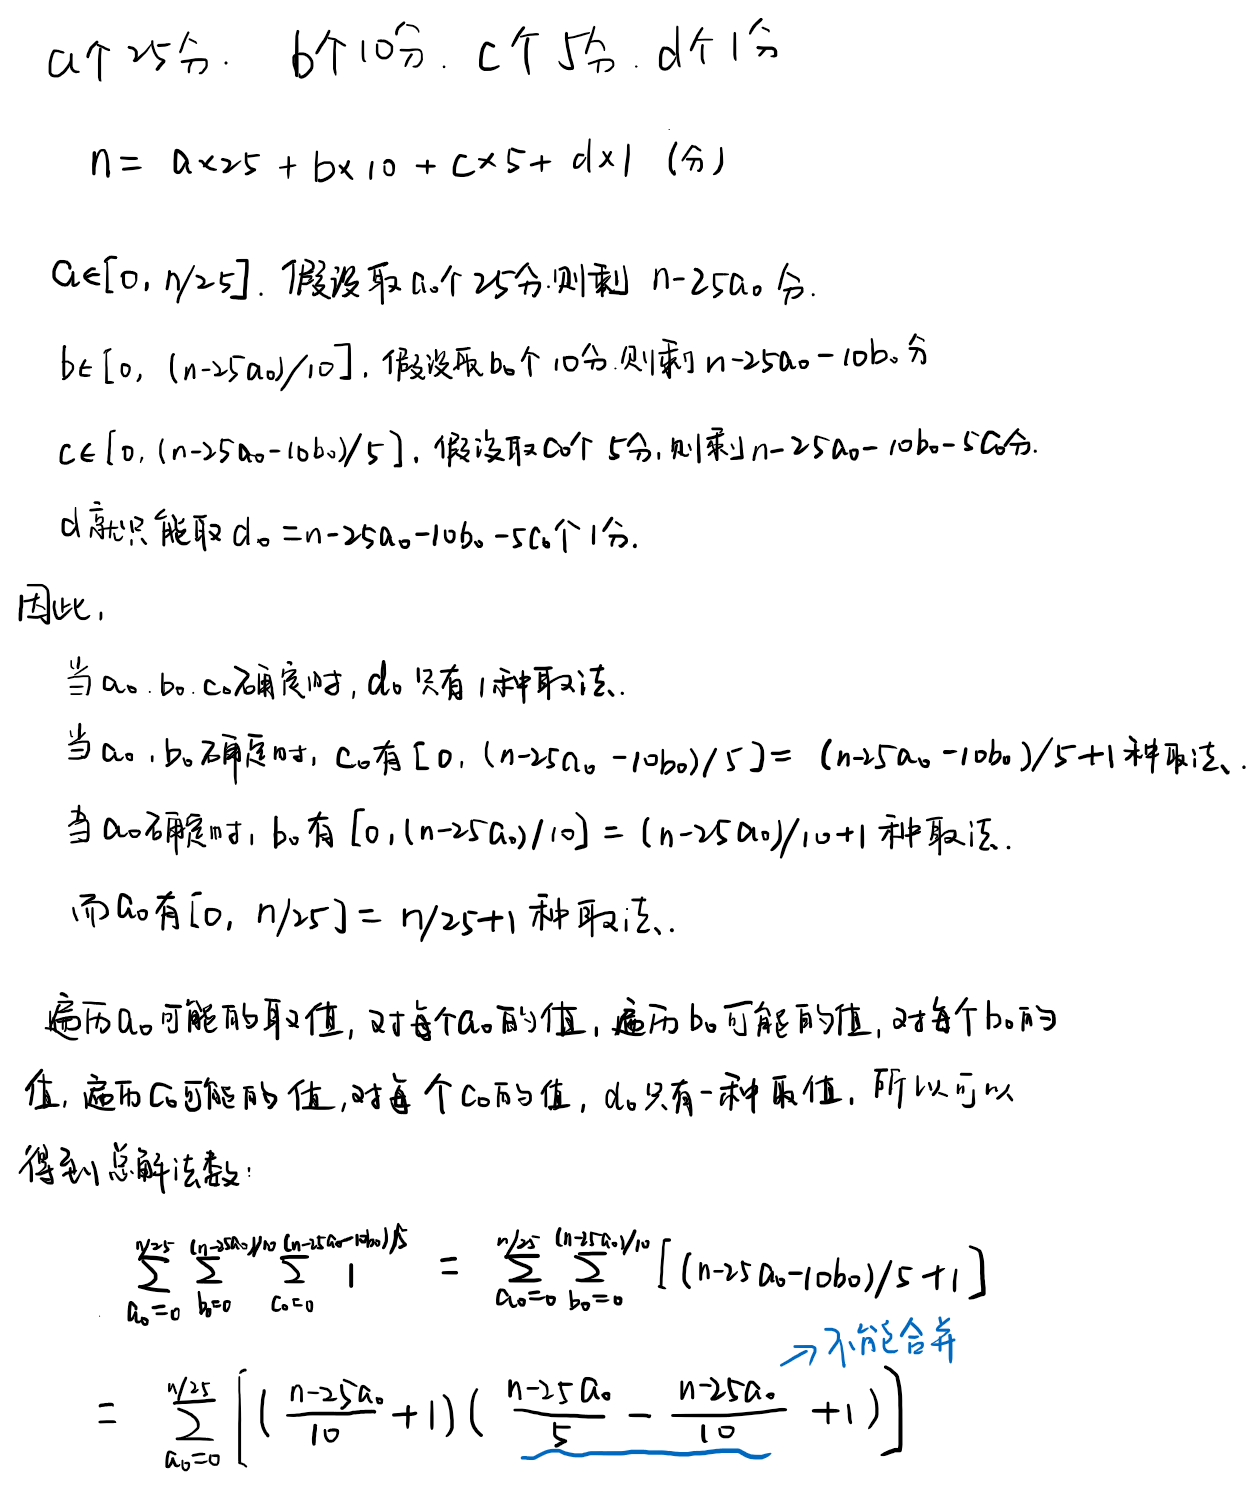 a个25分. b个10分. c个5分. d个1分
n = a×25 + b×10 + c×5 + d×1 (分)
a∈[0, n/25]. 假设取a₀个25分.则剩 n-25a₀ 分.
b∈[0, (n-25a₀)/10]. 假设取b₀个10分.则剩n-25a₀-10b₀分
c∈[0, (n-25a₀-10b₀)/5]. 假设取c₀个5分,则剩n-25a₀-10b₀-5c₀分.
d就只能取d₀=n-25a₀-10b₀-5c₀个1分.
因此,
当a₀.b₀.c₀确定时,d₀只有1种取法.
当a₀,b₀确定时,c₀有[0, (n-25a₀-10b₀)/5]=(n-25a₀-10b₀)/5+1种取法.
当a₀确定时,b₀有[0,(n-25a₀)/10]=(n-25a₀)/10+1种取法.
而a₀有[0, n/25]=n/25+1种取法.
遍历a₀可能的取值,对每个a₀的值,遍历b₀可能的值,对每个b₀的
值,遍历c₀可能的值,对每个c₀的值,d₀只有一种取值.所以可以
得到总解法数:
∑_{a₀=0}^{n/25} ∑_{b₀=0}^{(n-25a₀)/10} ∑_{c₀=0}^{(n-25a₀-10b₀)/5} 1 = ∑_{a₀=0}^{n/25} ∑_{b₀=0}^{(n-25a₀)/10} [(n-25a₀-10b₀)/5+1]
→不能合并
= ∑_{a₀=0}^{n/25} [(\frac{n-25a₀}{10}+1)(\frac{n-25a₀}{5} - \frac{n-25a₀}{10} +1)]